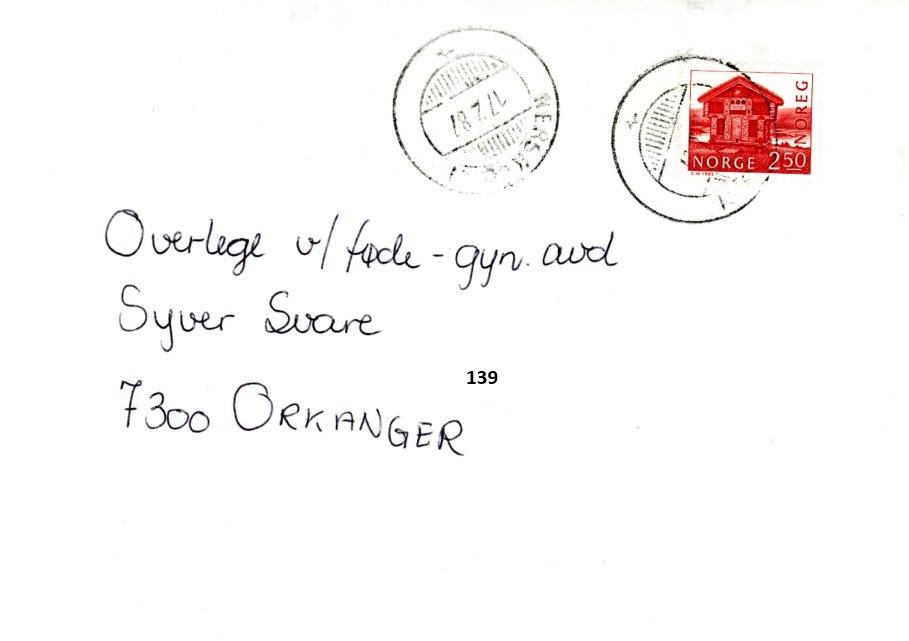 17.2.87
NORGE 250
NOREG
Overlege v/føde-gyn. avd
Syver Svare
139
7300 ORKANGER